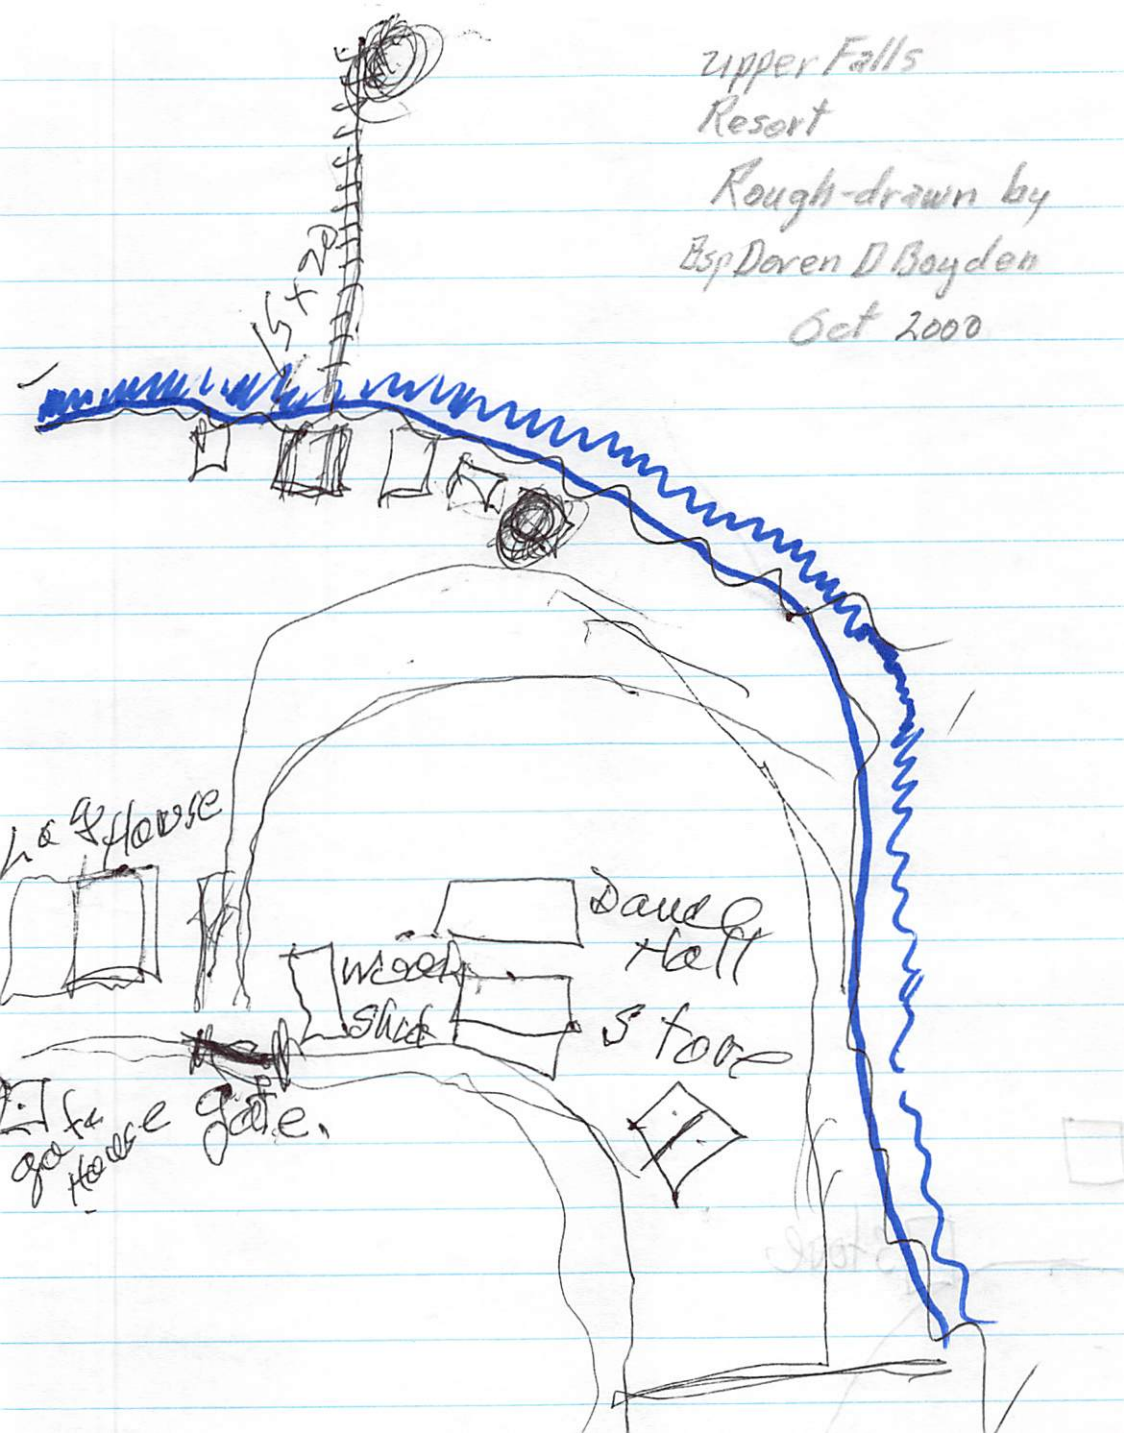 Upper Falls
Resort
Rough-drawn by
Doren D Boyden
Oct 2000
15 + 20
Log House
Dance
Hall
wood
Shed
Store
gate
House
gate.
Store